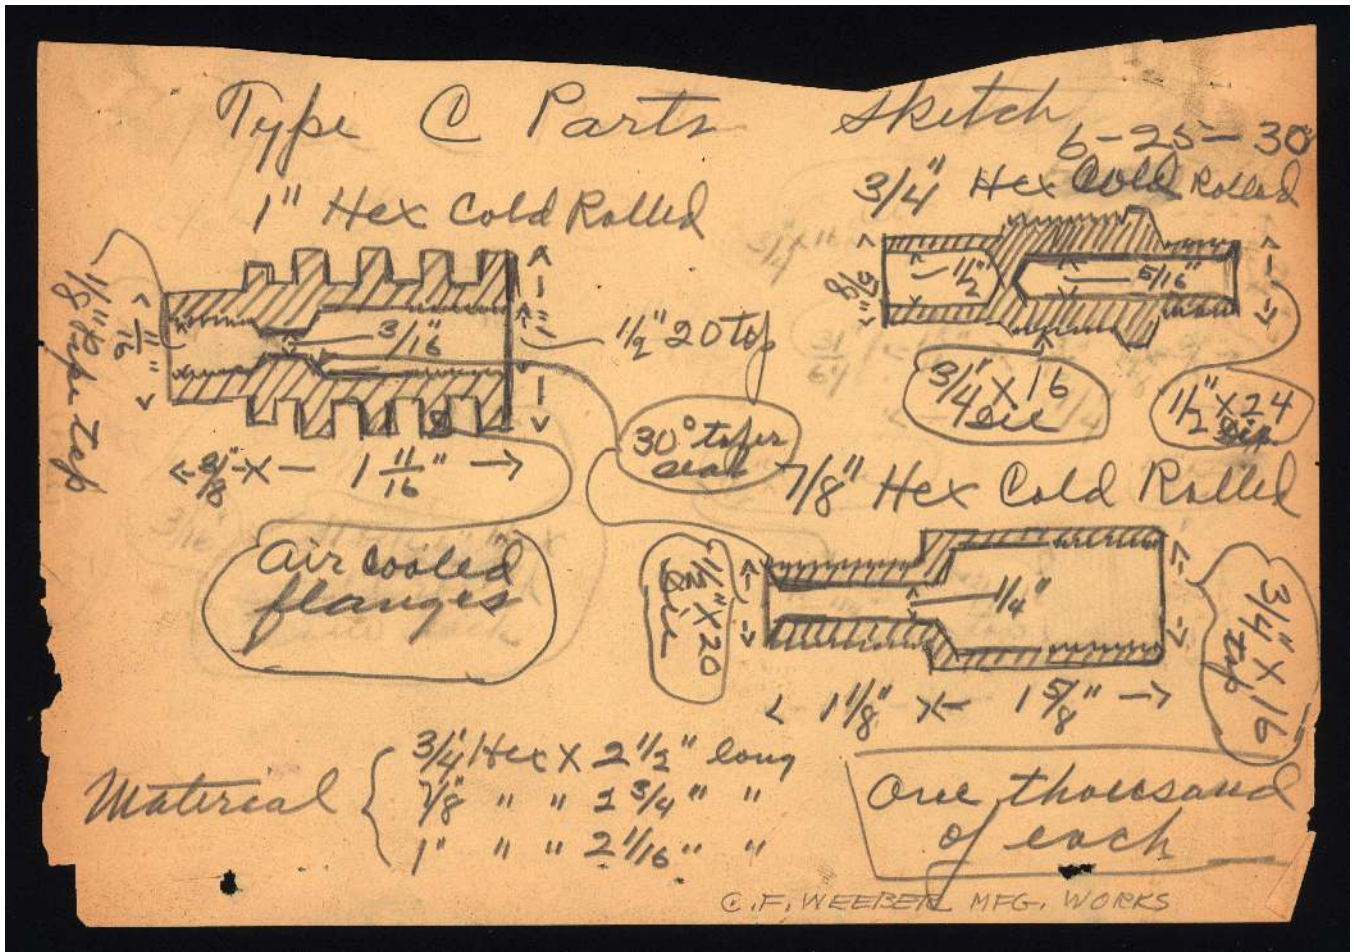 Type C Parts sketch
6-25-30
1" Hex Cold Rolled
1/8" pipe tap
11/16"
3/16"
1"
1/2" 20 tap
30° taper
seat
3/8" X 1 11/16"
air cooled
flanges
3/4" Hex Cold Rolled
5/8"
1/2"
5/16"
3/4" X 16
Die
1/2" X 24
7/8" Hex Cold Rolled
1/2" X 20
Die
1/4"
3/4" X 16
tap
1 1/8" X 1 5/8"
Material
3/4" Hex X 2 1/2" long
7/8 " " 2 3/4" "
1" " " 2 1/16" "
One thousand
of each
C.F. WEEBER MFG. WORKS